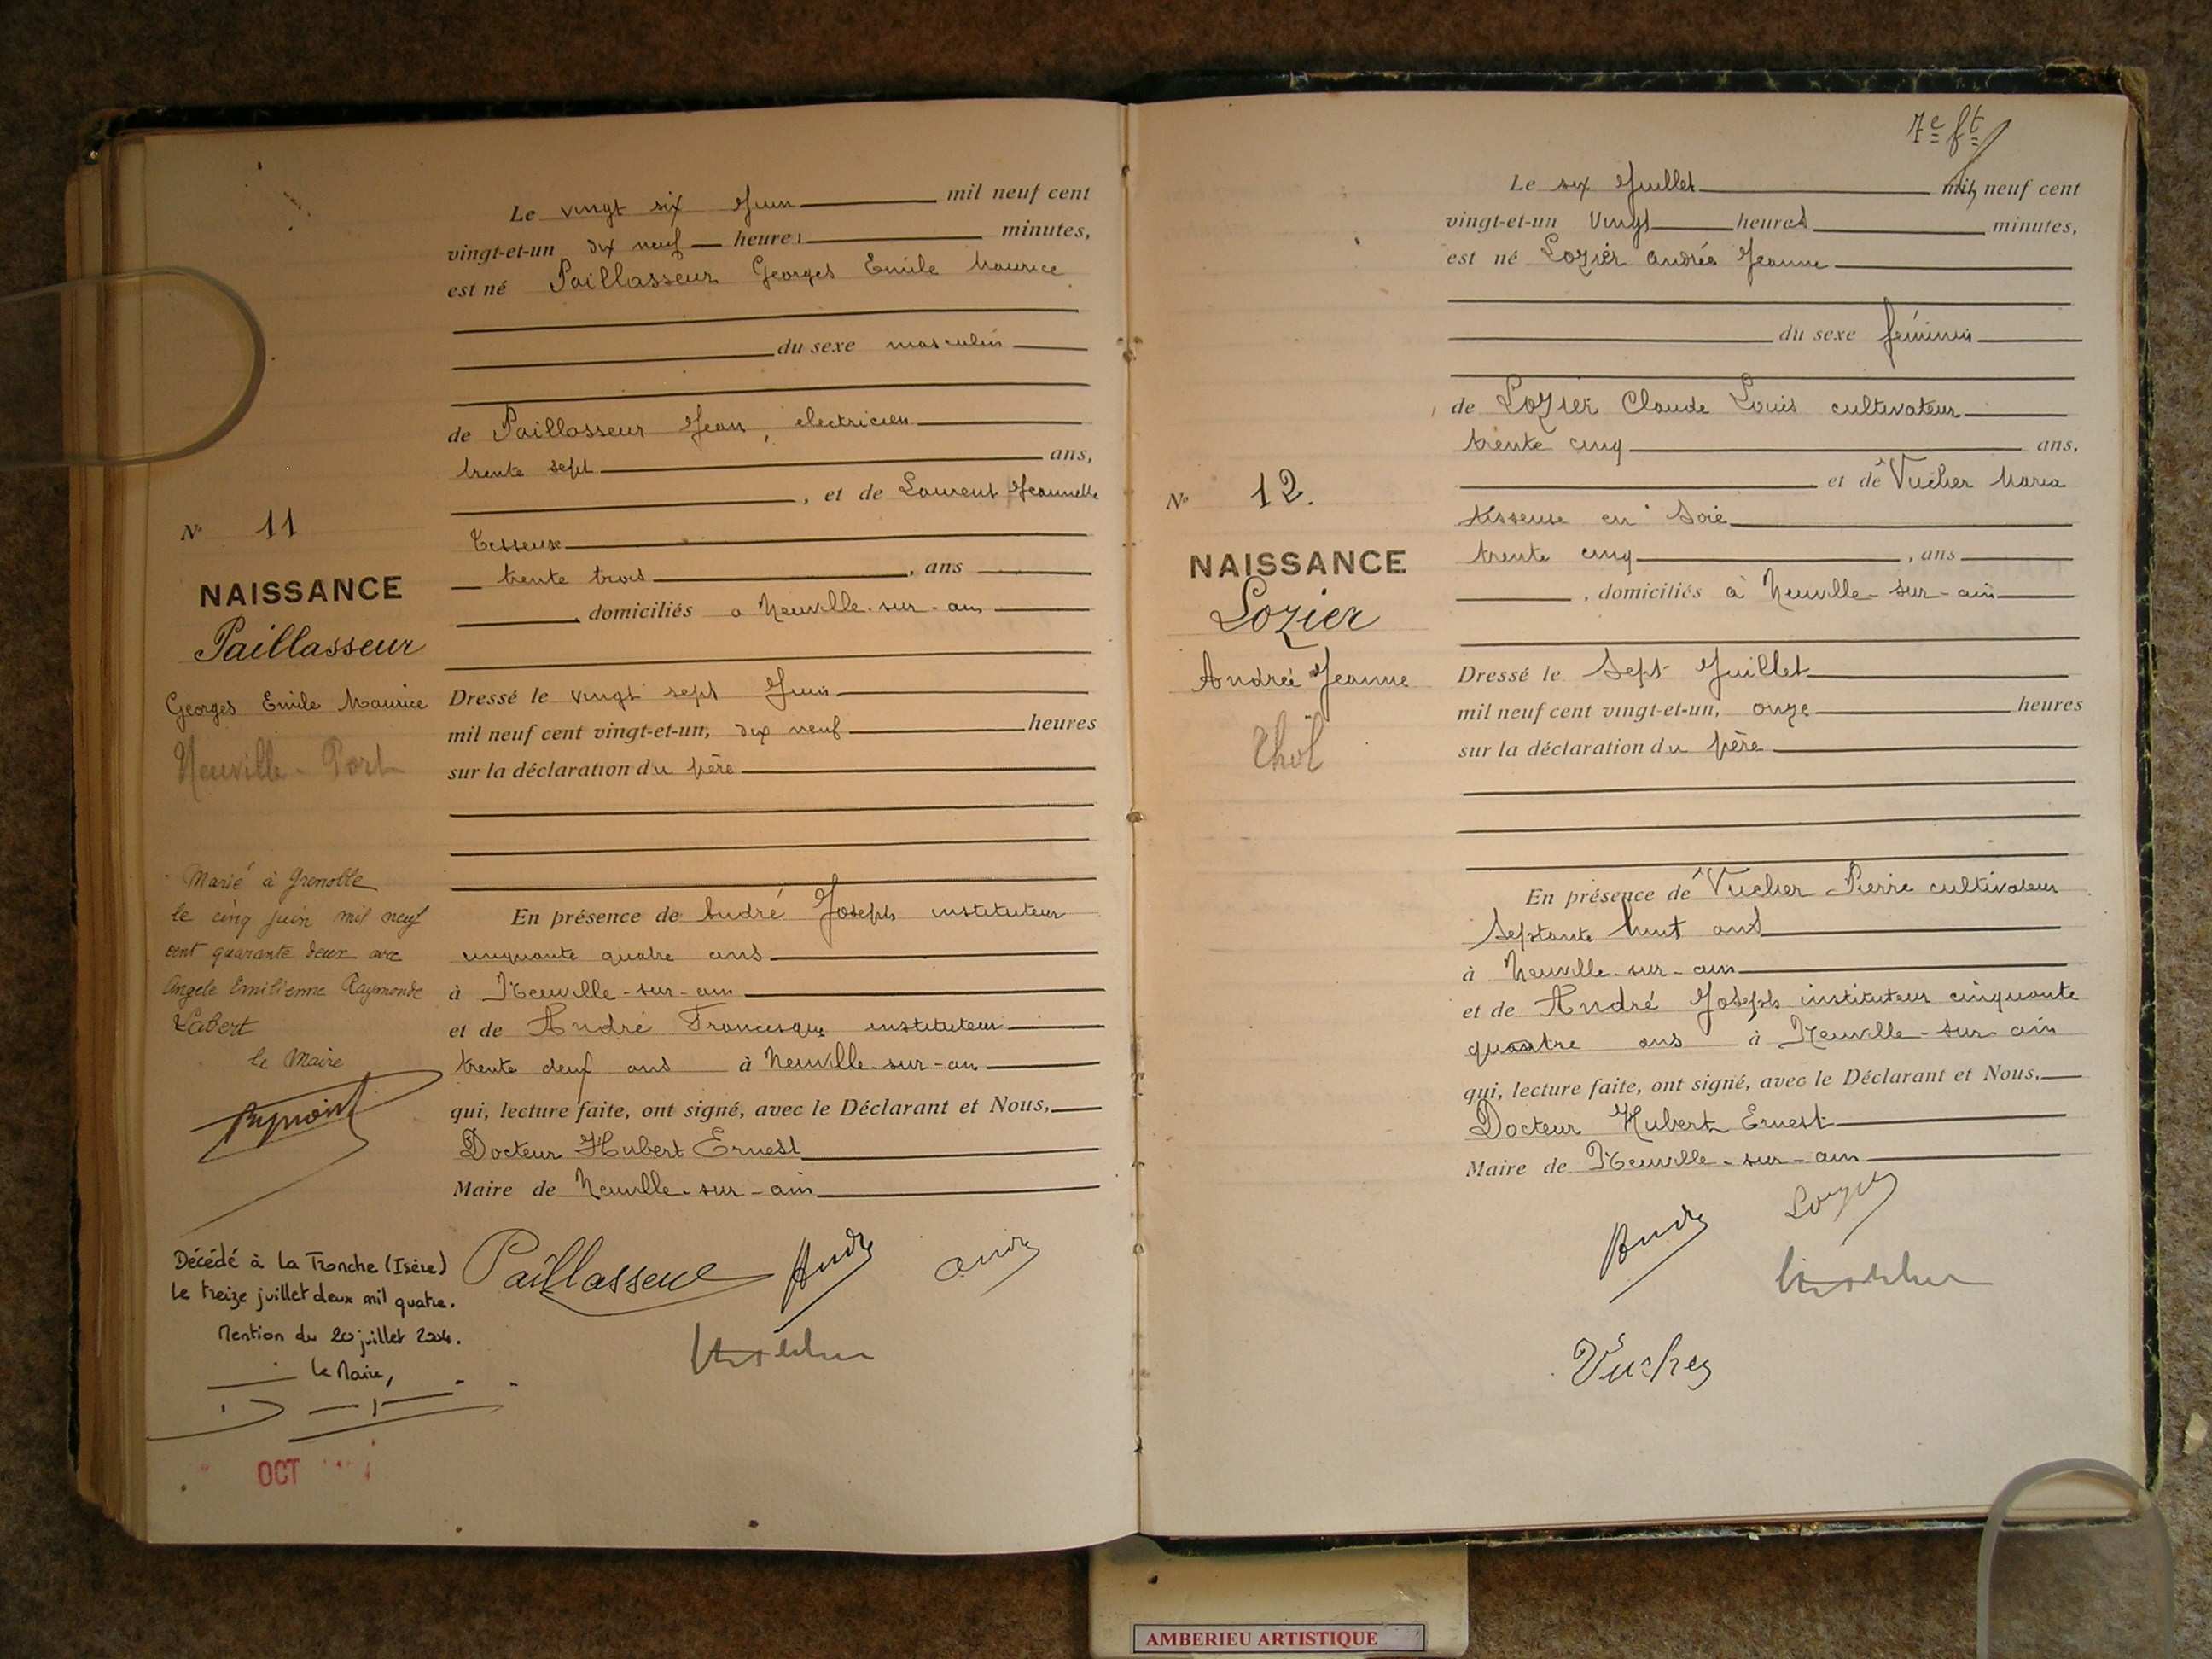 Le vingt six Juin mil neuf cent
vingt-et-un dix neuf heures minutes,
est né Paillasseur Georges Emile Maurice
du sexe masculin
de Paillasseur Jean, electricien
trente sept ans,
, et de Laurent Jeannette
Tisseuse
trente trois , ans
, domiciliés a Neuville-sur-ain
Dressé le vingt sept Juin
mil neuf cent vingt-et-un, dix neuf heures
sur la déclaration du père
En présence de André Joseph instituteur
cinquante quatre ans
à Neuville-sur-ain
et de André Francisque instituteur
trente deux ans à Neuville-sur-ain
qui, lecture faite, ont signé, avec le Déclarant et Nous,
Docteur Hubert Ernest
Maire de Neuville-sur-ain
Paillasseur André André
N° 11
NAISSANCE
Paillasseur
Georges Emile Maurice
Neuville-Port
Marié à Grenoble
le cinq juin mil neuf
cent quarante deux avec
Angele Emilienne Raymonde
Labert
le Maire
Décédé à La Tronche (Isère)
le treize juillet deux mil quatre.
Mention du 20 juillet 2004.
Le Maire,
OCT
7e ft
Le six Juillet mil neuf cent
vingt-et-un Vingt heures minutes,
est né Lozier Andrée Jeanne
du sexe féminin
de Lozier Claude Louis cultivateur
trente cinq ans,
et de Vucher Maria
tisseuse en soie
trente cinq , ans
, domiciliés à Neuville-sur-ain
Dressé le Sept Juillet
mil neuf cent vingt-et-un, onze heures
sur la déclaration du père
En présence de Vucher Pierre cultivateur
Septante huit ans
à Neuville-sur-ain
et de André Joseph instituteur cinquante
quatre ans à Neuville-sur-ain
qui, lecture faite, ont signé, avec le Déclarant et Nous,
Docteur Hubert Ernest
Maire de Neuville-sur-ain
André Lozier
Vucher
N° 12.
NAISSANCE
Lozier
Andrée Jeanne
Thol
AMBERIEU ARTISTIQUE